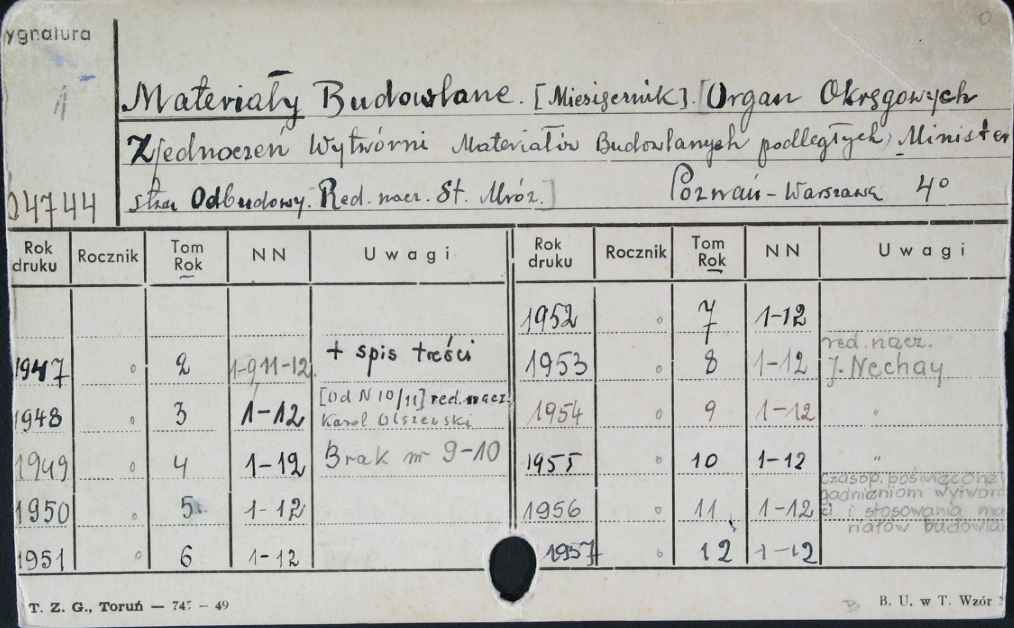 ygnatura
Materiały Budowlane. [Miesięcznik]. [Organ Okręgowych
Zjednoczeń Wytwórni Materiałów Budowlanych podległych Minister
stwu Odbudowy. Red. nacz. St. Mróz.] Poznań - Warszawa 4°
04744
Rok druku Rocznik Tom Rok NN Uwagi Rok druku Rocznik Tom Rok NN Uwagi
1952 o 7 1-12
1947 o 2 1-9, 11-12 + spis treści 1953 o 8 1-12 red. nacz. J. Nechay
1948 o 3 1-12 [Od N 10/11] red. nacz. Karol Olszewski 1954 o 9 1-12 "
1949 o 4 1-12 Brak nr 9-10 1955 o 10 1-12 "
1950 o 5 1-12 1956 o 11 1-12 czasop. poświęcone
gadnieniom wytwór
i stosowania ma
riałów budowla
1951 o 6 1-12 1957 o 12 1-12
T. Z. G., Toruń — 747 — 49 B. U. w T. Wzór